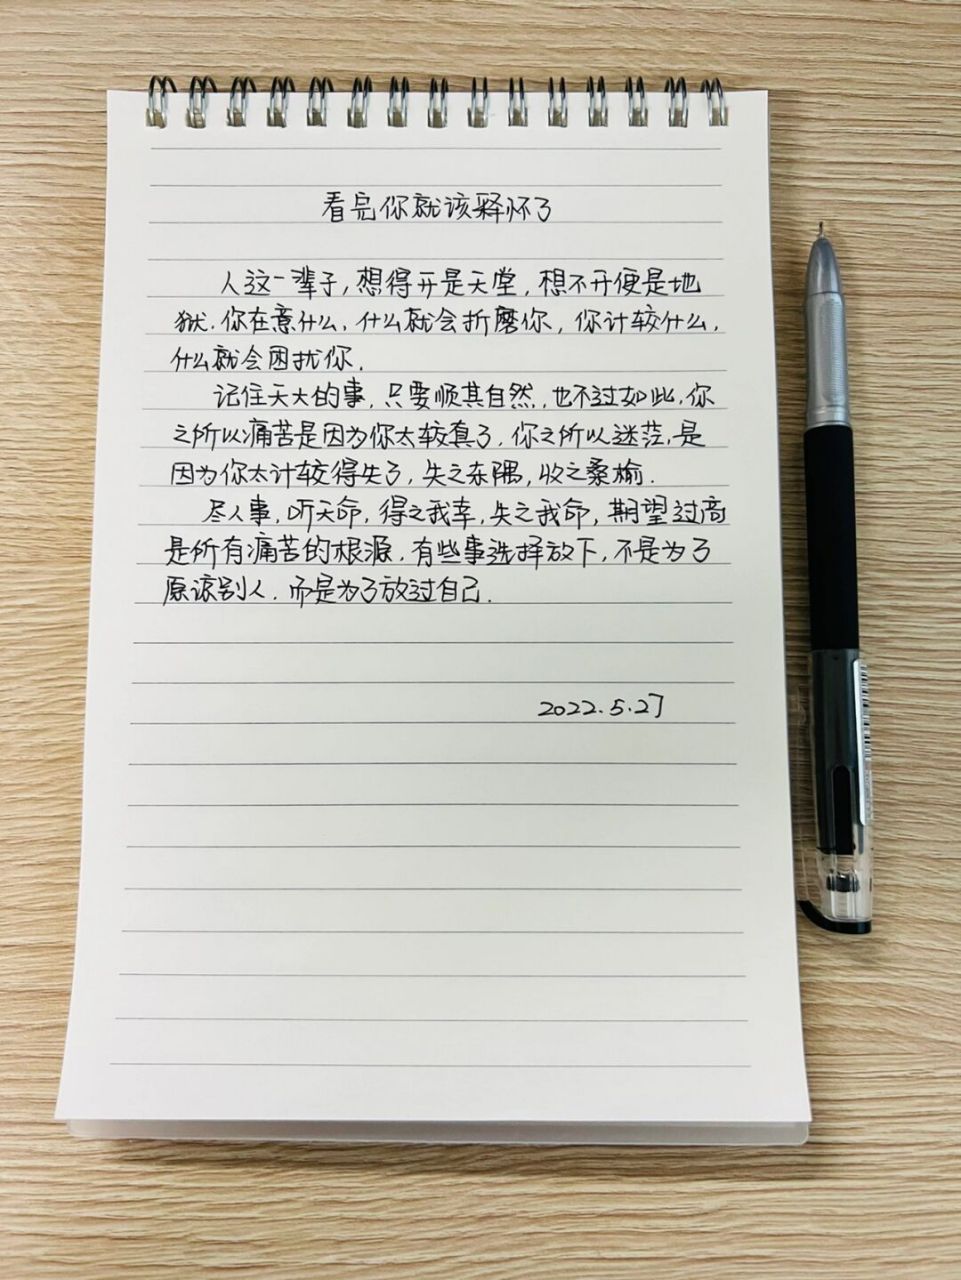 看完你就该释怀了
人这一辈子,想得开是天堂,想不开便是地
狱.你在意什么,什么就会折磨你,你计较什么,
什么就会困扰你.
记住天大的事,只要顺其自然,也不过如此.你
之所以痛苦是因为你太较真了,你之所以迷茫,是
因为你太计较得失了,失之东隅,收之桑榆.
尽人事,听天命,得之我幸,失之我命,期望过高
是所有痛苦的根源.有些事选择放下,不是为了
原谅别人.而是为了放过自己.
2022.5.27